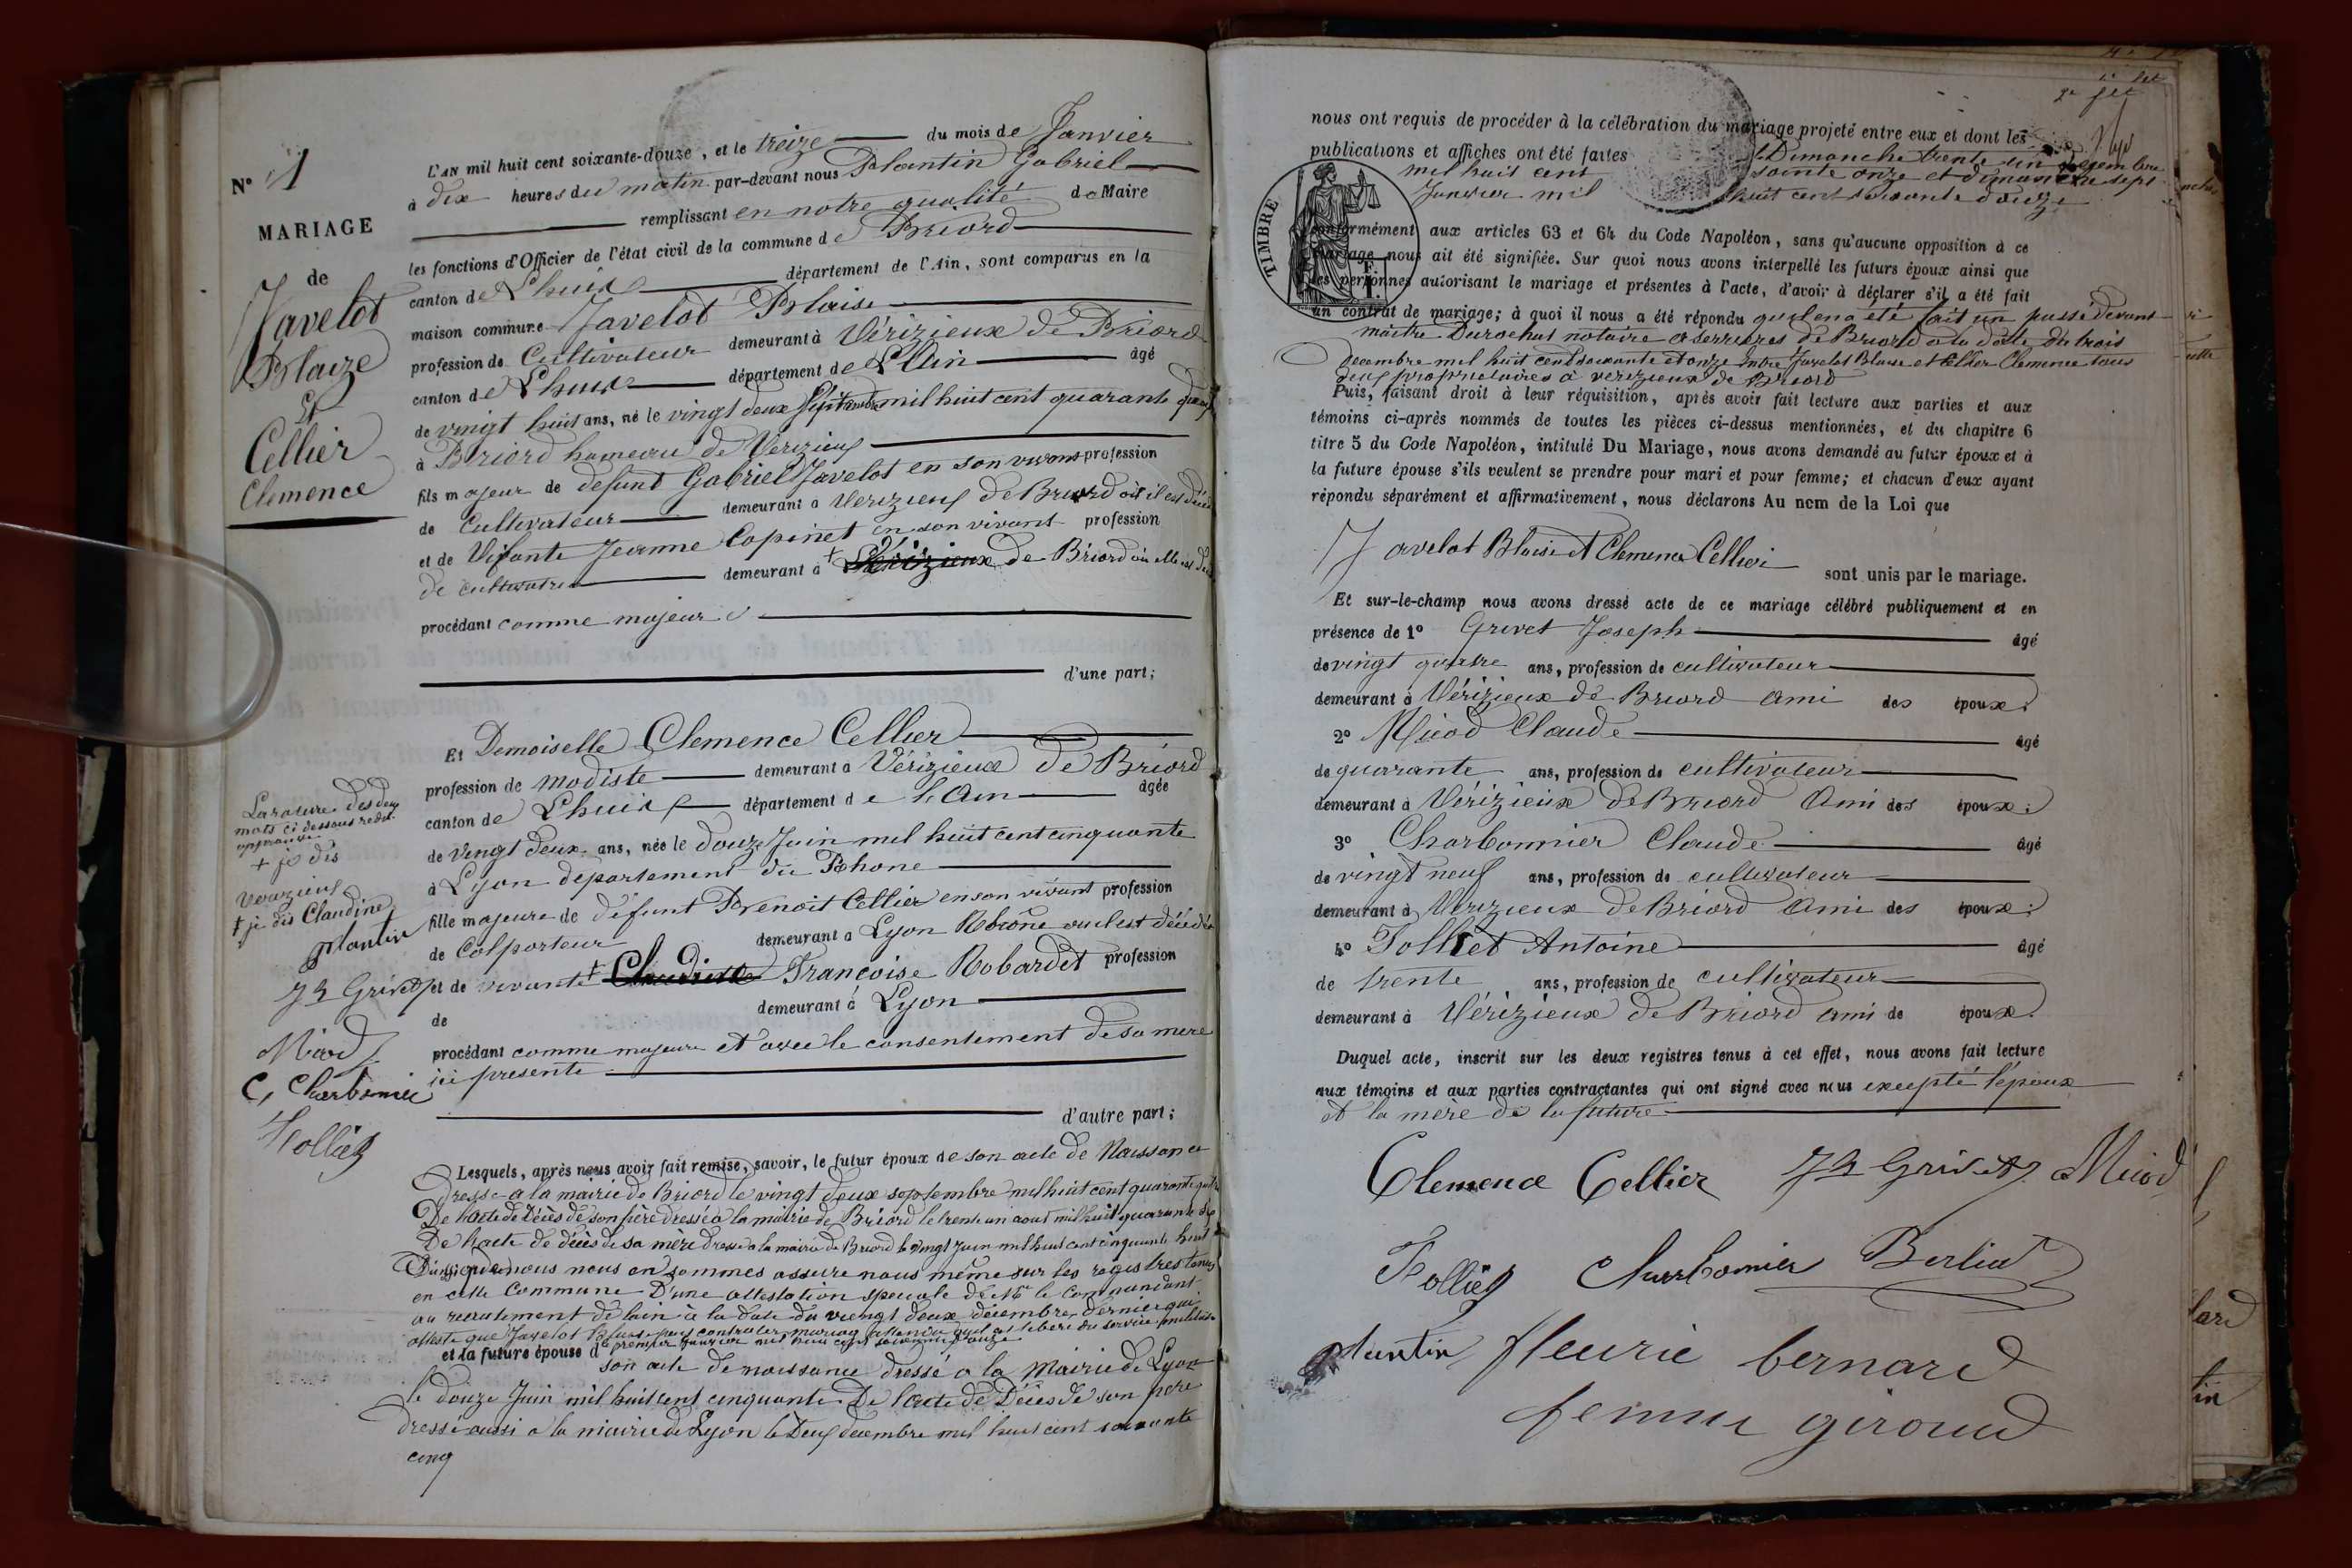 N° 1
MARIAGE
de
Javelot
Blaize
Et
Cellier
Clemence
L'AN mil huit cent soixante-douze, et le treize du mois de Janvier
à dix heures du matin par-devant nous Plantin Gabriel
remplissant en notre qualité de Maire
les fonctions d'Officier de l'état civil de la commune de Briord
canton de Lhuis département de l'Ain, sont comparus en la
maison commune Javelot Blaise
profession de Cultivateur demeurant à Vérizieux de Briord
canton de Lhuis département de L'Ain âgé
de vingt huit ans, né le vingt deux Septembre mil huit cent quarante
à Briord hameau de Verizieux
fils majeur de defunt Gabriel Javelot en son vivant profession
de Cultivateur demeurant à Verizieux de Briord où il est
et de Défunte Jeanne Copinet en son vivant profession
de cultivatrice demeurant à + Vérizieux de Briord où elle est
procédant comme majeur
d'une part;
Et Demoiselle Clemence Cellier
profession de modiste demeurant à Vérizieux de Briord
canton de Lhuis département de l'Ain âgée
de vingt deux ans, née le douze Juin mil huit cent cinquante
à Lyon département du Rhone
fille majeure de défunt Benoit Cellier en son vivant profession
de Colporteur demeurant à Lyon Rhône ou il est décédé
et de vivante + Claudine Françoise Robardet profession
de demeurant à Lyon
procédant comme majeure et avec le consentement de sa mere
ici presente
d'autre part;
La rature des deux
mots ci dessous
approuvé
+ je dis
Verizieux
+ je dis Claudine
Plantin
JB Grivet
Miod
C, Charbonnier
Tolliet
Lesquels, après nous avoir fait remise, savoir, le futur époux de son acte de Naissance
dressé a la mairie de Briord le vingt deux septembre mil huit cent quarante
De l'acte de décès de son père dressé à la mairie de Briord le trente un aout mil huit quarante
De l'acte de décès de sa mère dressé a la mairie de Briord le vingt Juin mil huit cent cinquante huit
Ainsi que nous nous en sommes assuré nous même sur les registres tenus
en cette Commune D'une attestation speciale de Mr le Commandant
au recrutement de l'ain à la date du vingt deux décembre dernier qui
atteste que Javelot Blaise peut contracter mariage attendu qu'il est libéré du service militaire
le premier janvier mil huit cent soixante douze
et la future épouse de son acte de naissance dressé a la Mairie de Lyon
le douze Juin mil huit cent cinquante De l'acte de Décès de son pere
dressé aussi a la mairie de Lyon le Deux decembre mil huit cent soixante
cinq
nous ont requis de procéder à la célébration du mariage projeté entre eux et dont les
publications et affiches ont été faites Dimanche trente un Decembre
mil huit cent soixante onze et dimanche sept
Janvier mil huit cent soixante douze
TIMBRE
conformément aux articles 63 et 64 du Code Napoléon, sans qu'aucune opposition à ce
mariage nous ait été signifiée. Sur quoi nous avons interpellé les futurs époux ainsi que
les personnes autorisant le mariage et présentes à l'acte, d'avoir à déclarer s'il a été fait
un contrat de mariage; à quoi il nous a été répondu qu'il en a été fait un passé devant
maitre Durochat notaire a derrières de Briord a la date du trois
decembre mil huit cent soixante et onze entre Javelot Blaise et Cellier Clemence tous
deux proprietaires à verizieux de Briord
Puis, faisant droit à leur réquisition, après avoir fait lecture aux parties et aux
témoins ci-après nommés de toutes les pièces ci-dessus mentionnées, et du chapitre 6
titre 5 du Code Napoléon, intitulé Du Mariage, nous avons demandé au futur époux et à
la future épouse s'ils veulent se prendre pour mari et pour femme; et chacun d'eux ayant
répondu séparément et affirmativement, nous déclarons Au nom de la Loi que
Javelot Blaise et Clemence Cellier
sont unis par le mariage.
Et sur-le-champ nous avons dressé acte de ce mariage célébré publiquement et en
présence de 1° Grivet Joseph âgé
de vingt quatre ans, profession de cultivateur
demeurant à Vérizieux de Briord ami des époux.
2° Miod Claude âgé
de quarante ans, profession de cultivateur
demeurant à Vérizieux de Briord Ami des époux.
3° Charbonnier Claude âgé
de vingt neuf ans, profession de cultivateur
demeurant à Verizieux de Briord Ami des époux.
4° Tolliet Antoine âgé
de trente ans, profession de cultivateur
demeurant à Vérizieux de Briord ami de époux.
Duquel acte, inscrit sur les deux registres tenus à cet effet, nous avons fait lecture
aux témoins et aux parties contractantes qui ont signé avec nous excepté l'époux
et la mère de la future
Clemence Cellier JB Grivet Miod
Tolliet Charbonnier Berliat
Plantin fleurie bernard
femme giroud